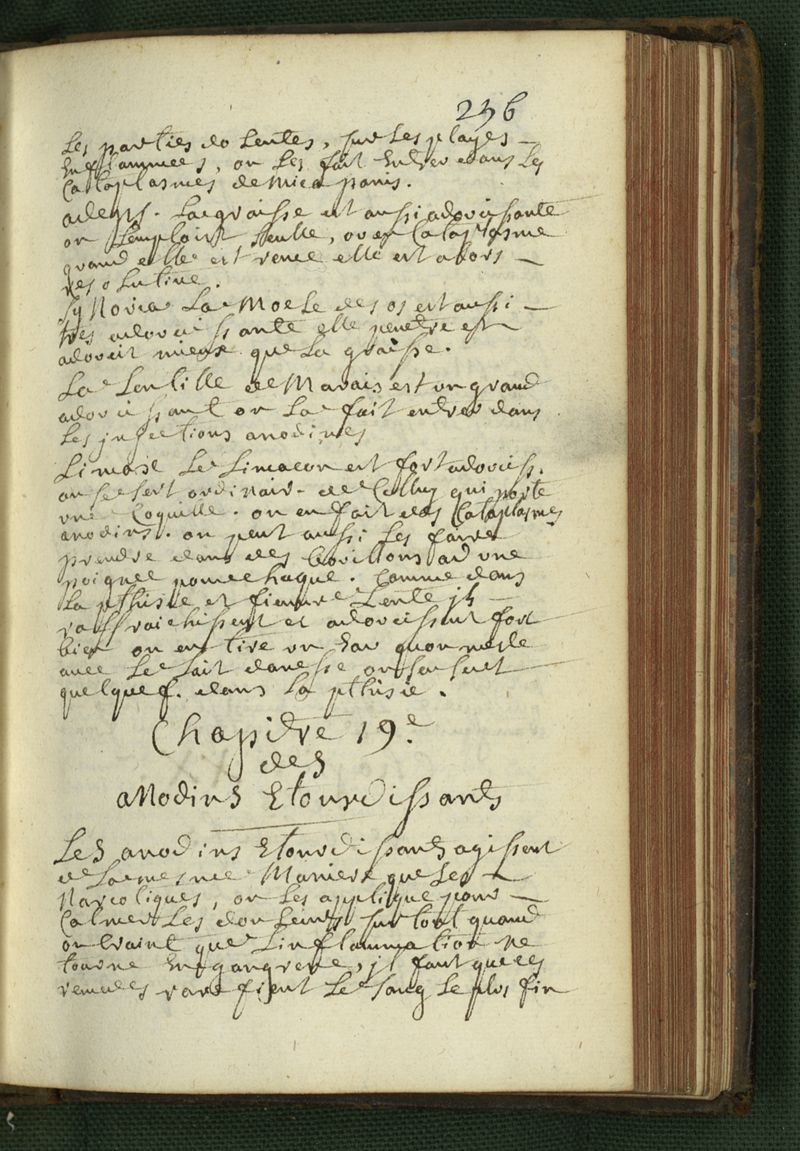 236
Les parties dolentes, sur les playes
Enflammées, on les fait Entrer dans les
Cataplasmes de mica panis.
adeps. La graisse est aussi adoucissante
on Lemploit seulle, ou en Cataplasme
quand elle est rence elle est alors
resolutive.
La Moele des os est aussi
tres adoucissante elle penetre et
adoucit mieux que La graisse.
La Lentille de Marais est un grand
adoucissant on La fait entrer dans
Les injections anodines
Limax Le Limacon est fort adouciss.
on se sert ordinair. de Celluy qui porte
une Coquille. on en fait des Cataplasmes
anodins. on peut aussi les faire
prendre dans des bouillons ad une
poignee pour chaque. Comme dans
La pthisie et fievre Lente ils
raffraichissent et adoucissent fort
bien on en tire un Eau quon mesle
avec Le Lait danesse on sen sert
quelquef. dans La pthisie.
Chapitre 19.e
des
anodins Etourdissants
Les anodins Etourdissants agissent
de La mesme Maniere que Les
Narcotiques, on Les applique pour
Calmer Les douleurs sur tout quand
on Craint que Linflammation ne
tourne En gangrene, il faut que ces
remedes rarefient Le sang Le plus fin